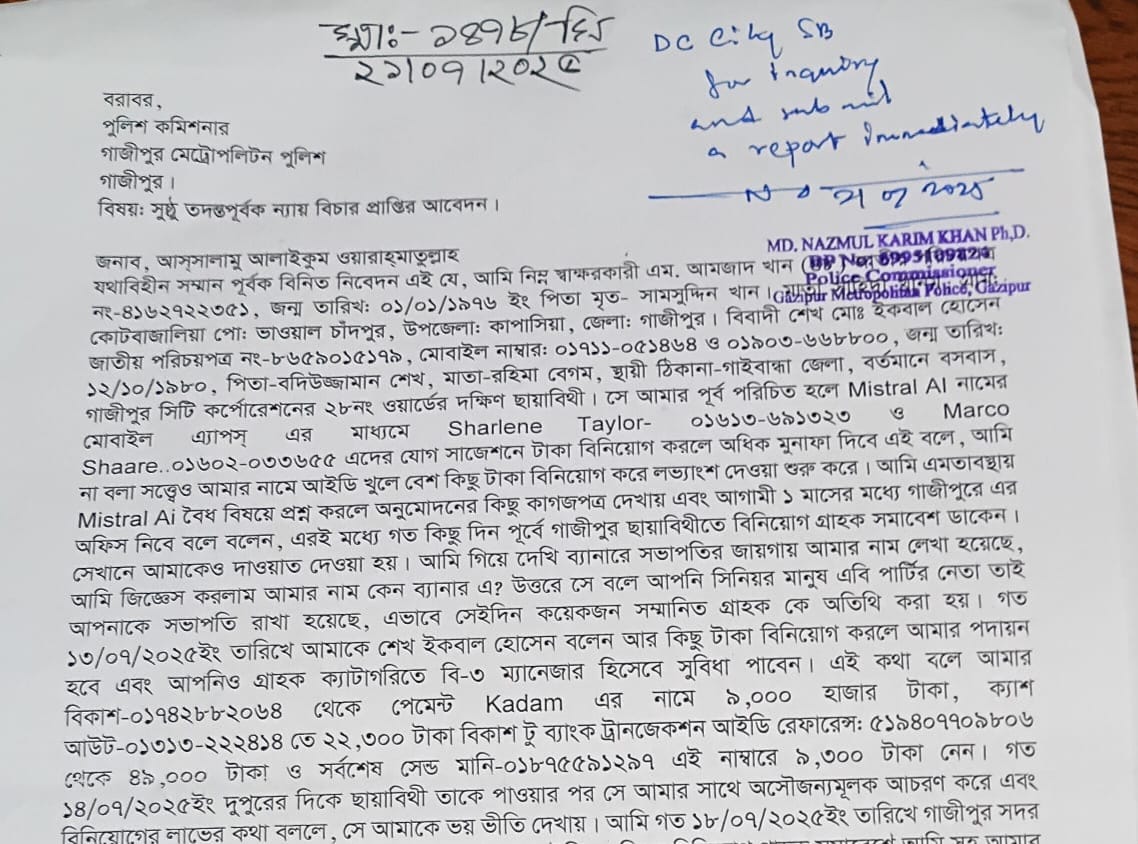 স্মা:- ১৪৭৮/সি
২১/০৭/২০২৫
DC City SB
for inquiry
and submit
a report immediately
21 07 2025
MD. NAZMUL KARIM KHAN Ph,D.
Police Commissioner
Gazipur Metropolitan Police, Gazipur
বরাবর,
পুলিশ কমিশনার
গাজীপুর মেট্রোপলিটন পুলিশ
গাজীপুর ।
বিষয়ঃ সুষ্ঠু তদন্তপূর্বক ন্যায় বিচার প্রাপ্তির আবেদন ।
জনাব, আস্সালামু আলাইকুম ওয়ারাহমাতুল্লাহ
যথাবিহীন সম্মান পূর্বক বিনিত নিবেদন এই যে, আমি নিম্ন স্বাক্ষরকারী এম. আমজাদ খান
নং-৪১৬২৭২২৩৫১, জন্ম তারিখঃ ০১/০১/১৯৭৬ ইং পিতা মৃত- সামসুদ্দিন খান ।
কোটবাজালিয়া পোঃ ভাওয়াল চাঁদপুর, উপজেলাঃ কাপাসিয়া, জেলাঃ গাজীপুর । বিবাদী শেখ মোঃ ইকবাল হোসেন
জাতীয় পরিচয়পত্র নং-৮৬৫৯০১৫১৭৯, মোবাইল নাম্বারঃ ০১৭১১-০৫১৪৬৪ ও ০১৯০৩-৬৬৮৮০০, জন্ম তারিখঃ
১২/১০/১৯৮০, পিতা-বদিউজ্জামান শেখ, মাতা-রহিমা বেগম, স্থায়ী ঠিকানা-গাইবান্ধা জেলা, বর্তমানে বসবাস,
গাজীপুর সিটি কর্পোরেশনের ২৮নং ওয়ার্ডের দক্ষিণ ছায়াবিথী । সে আমার পূর্ব পরিচিত হলে Mistral AI নামের
মোবাইল এ্যাপস্ এর মাধ্যমে Sharlene Taylor- ০১৬১৩-৬৯১৩২৩ ও Marco
Shaare..০১৬০২-০৩৩৬৫৫ এদের যোগ সাজেশনে টাকা বিনিয়োগ করলে অধিক মুনাফা দিবে এই বলে, আমি
না বলা সত্ত্বেও আমার নামে আইডি খুলে বেশ কিছু টাকা বিনিয়োগ করে লভ্যাংশ দেওয়া শুরু করে । আমি এমতাবস্থায়
Mistral Ai বৈধ বিষয়ে প্রশ্ন করলে অনুমোদনের কিছু কাগজপত্র দেখায় এবং আগামী ১ মাসের মধ্যে গাজীপুরে এর
অফিস নিবে বলে বলেন, এরই মধ্যে গত কিছু দিন পূর্বে গাজীপুর ছায়াবিথীতে বিনিয়োগ গ্রাহক সমাবেশ ডাকেন ।
সেখানে আমাকেও দাওয়াত দেওয়া হয় । আমি গিয়ে দেখি ব্যানারে সভাপতির জায়গায় আমার নাম লেখা হয়েছে,
আমি জিজ্ঞেস করলাম আমার নাম কেন ব্যানার এ? উত্তরে সে বলে আপনি সিনিয়র মানুষ এবি পার্টির নেতা তাই
আপনাকে সভাপতি রাখা হয়েছে, এভাবে সেইদিন কয়েকজন সম্মানিত গ্রাহক কে অতিথি করা হয় । গত
১৩/০৭/২০২৫ইং তারিখে আমাকে শেখ ইকবাল হোসেন বলেন আর কিছু টাকা বিনিয়োগ করলে আমার পদায়ন
হবে এবং আপনিও গ্রাহক ক্যাটাগরিতে বি-৩ ম্যানেজার হিসেবে সুবিধা পাবেন । এই কথা বলে আমার
বিকাশ-০১৭৪২৮৮২০৬৪ থেকে পেমেন্ট Kadam এর নামে ৯,০০০ হাজার টাকা, ক্যাশ
আউট-০১৩১৩-২২২৪১৪ তে ২২,৩০০ টাকা বিকাশ টু ব্যাংক ট্রানজেকশন আইডি রেফারেন্সঃ ৫১৯৪০৭৭০৯৮০৬
থেকে ৪৯,০০০ টাকা ও সর্বশেষ সেন্ড মানি-০১৮৭৫৫৯১২৯৭ এই নাম্বারে ৯,৩০০ টাকা নেন । গত
১৪/০৭/২০২৫ইং দুপুরের দিকে ছায়াবিথী তাকে পাওয়ার পর সে আমার সাথে অসৌজন্যমূলক আচরণ করে এবং
বিনিয়োগের লাভের কথা বললে, সে আমাকে ভয় ভীতি দেখায় । আমি গত ১৮/০৭/২০২৫ইং তারিখে গাজীপুর সদর